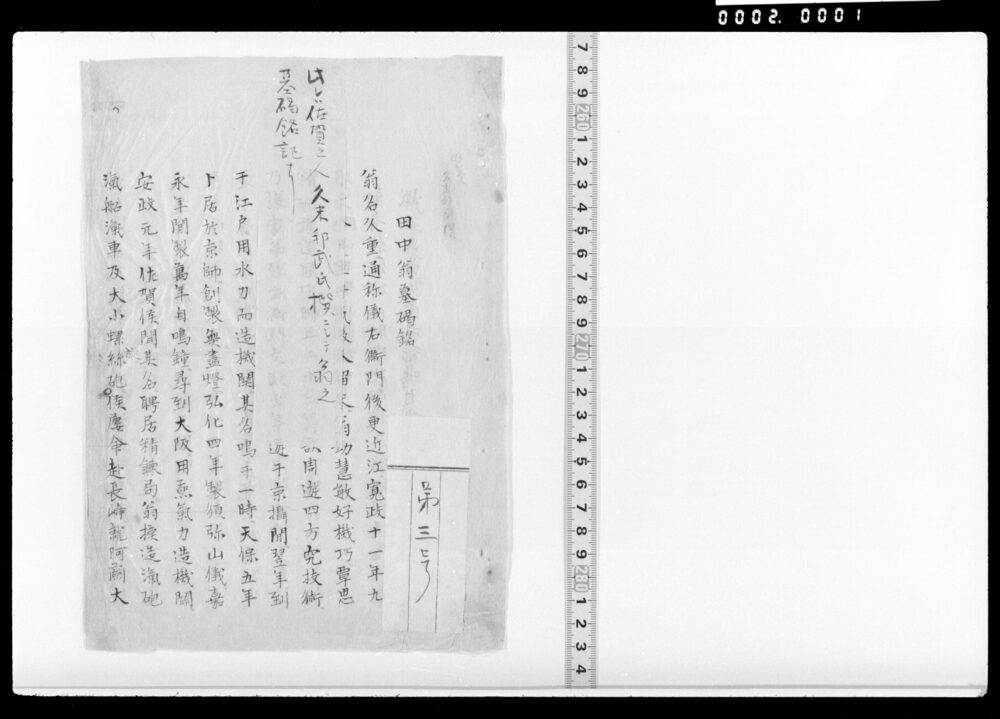 0002. 0001
第三号
田中翁墓碣銘
翁名久重通称儀右衛門後更近江寛政十一年九
幼慧敏好機巧覃思
周遊四方究技術
遊于京攝間翌年到
此ハ佐賀之人久米邦武氏撰
翁之
墓碣銘記
于江戸用水力而造機関其名鳴于一時天保五年
卜居於京師創製無盡燈弘化四年製須弥山儀嘉
永年間製萬年自鳴鐘尋到大阪用蒸氣力造機関
安政元年佐賀侯聞其名聘居精錬局翁換造滊砲
滊船滊車及大小螺絲砲侯屡命赴長崎就阿蘭大
7 8 9 260 1 2 3 4 5 6 7 8 9 270 1 2 3 4 5 6 7 8 9 280 1 2 3 4